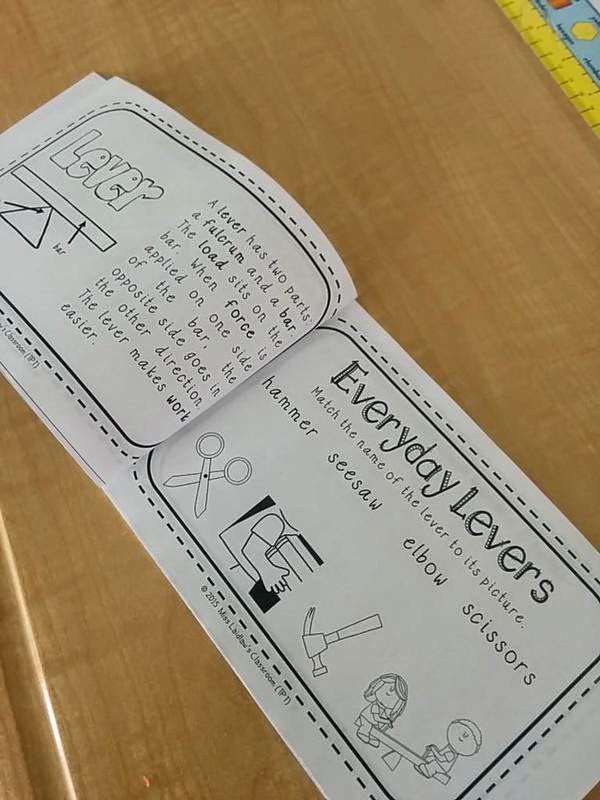 Lever
bar
A lever has two parts:
a fulcrum and a bar.
The load sits on the
bar. When force is
applied on one side
of the bar, the
opposite side goes in
the other direction.
The lever makes work
easier.
Everyday Levers
Match the name of the lever to its picture.
hammer seesaw elbow scissors
© 2015 Miss Laidlaw's Classroom (TPT)